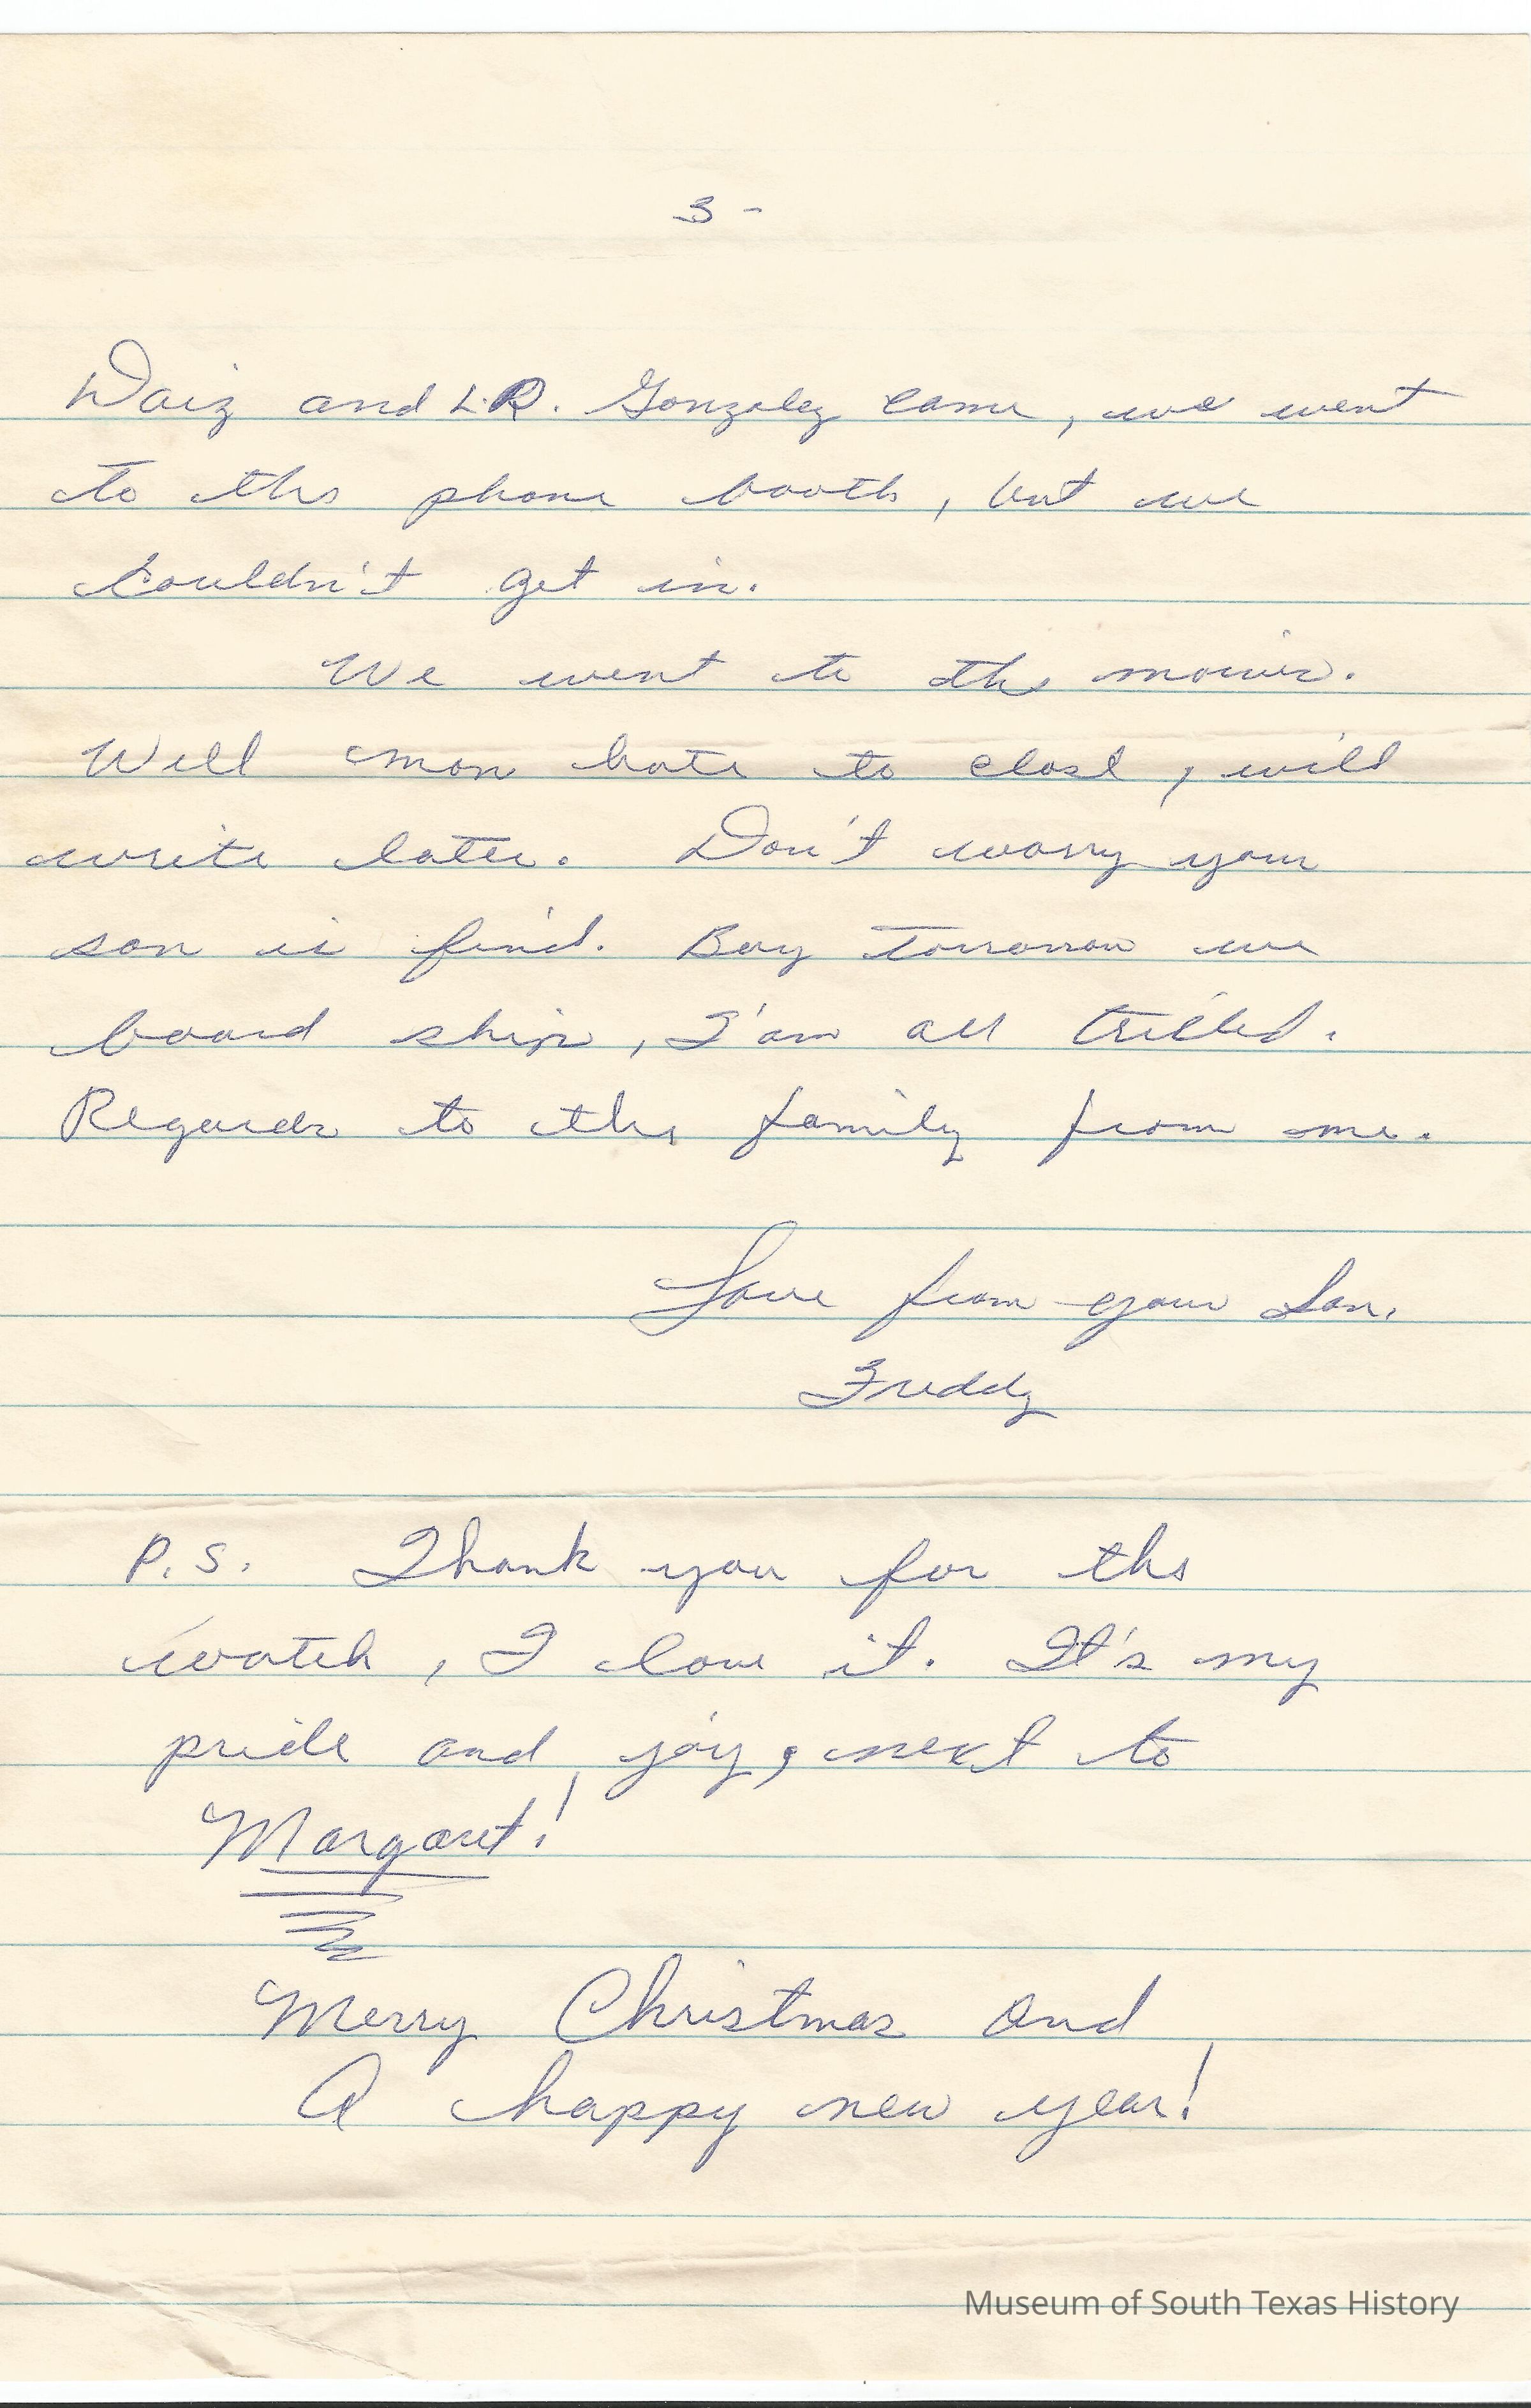 3 -
Daiz and L.R. Gonzalez came, we went
to the phone booth, but we
couldn't get in.
We went to the movie.
Well mom hate to close, will
write later. Don't worry your
son is find. Boy tomorrow we
board ship, I'am all trilled.
Regards to the family from me.
Love from your Son,
Freddy
P.S. Thank you for the
watch, I love it. It's my
pride and joy, next to
Margaret!
Merry Christmas and
A happy new year!
Museum of South Texas History